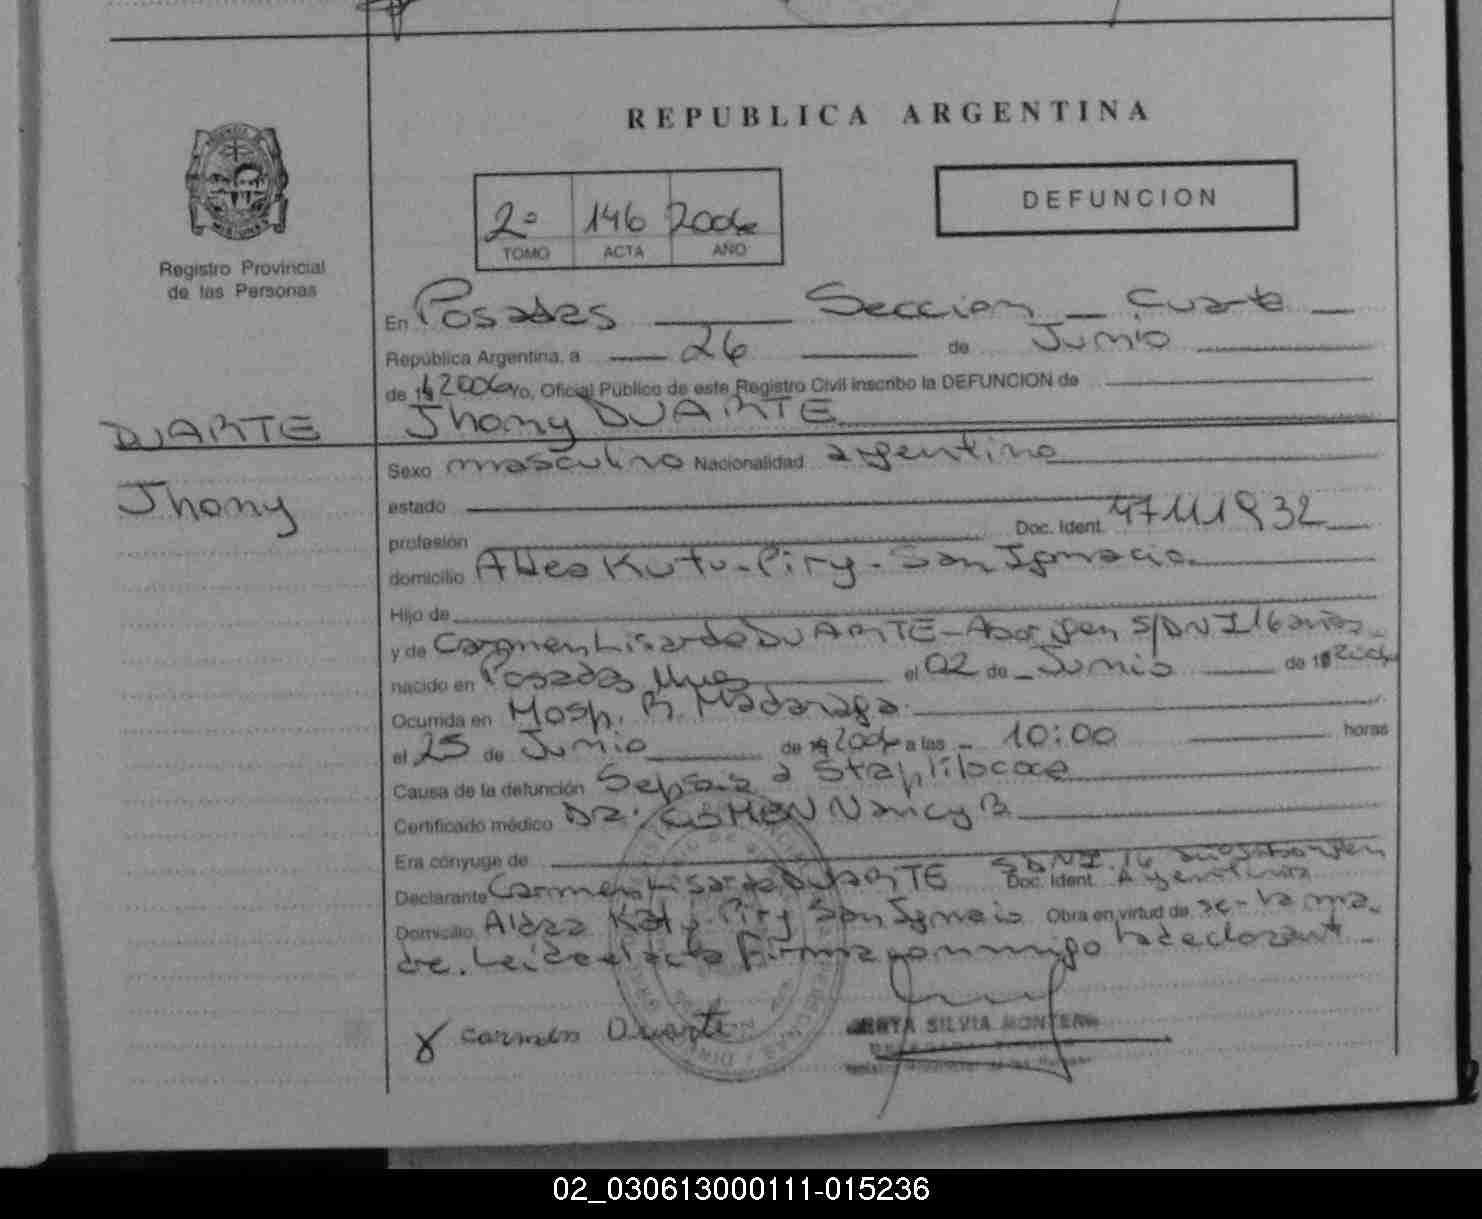 REPUBLICA ARGENTINA
DEFUNCION
2º 146 2006
TOMO ACTA AÑO
Registro Provincial
de las Personas
En Posadas Seccion Cuarta
República Argentina, a 26 de Junio
de 19 2006 Yo, Oficial Público de este Registro Civil inscribo la DEFUNCION de
DUARTE
Jhony DUARTE
Jhony
Sexo masculino Nacionalidad argentino
estado
profesión Doc. Ident. 47111932
domicilio Aldea Kutu-Piry - San Ignacio
Hijo de
y de Carmen Lisarda DUARTE - Aborigen S/DNI 16 años
nacido en Posadas Mnes el 02 de Junio de 19 2006
Ocurrida en Hosp. R. Madariaga
el 25 de Junio de 19 2006 a las 10:00 horas
Causa de la defunción Sepsis a
Certificado médico Dra. COHEN Nancy B
Era cónyuge de
Declarante Carmen Lisarda DUARTE Doc. Ident. S/DNI. 16 años Aborigen
Argentina
Domicilio Aldea Katu-Piry San Ignacio Obra en virtud de se- la ma-
dre. Leida el acta Firma conmigo la declarant
Carmen Duarte
SILVIA MONTERO
02_030613000111-015236